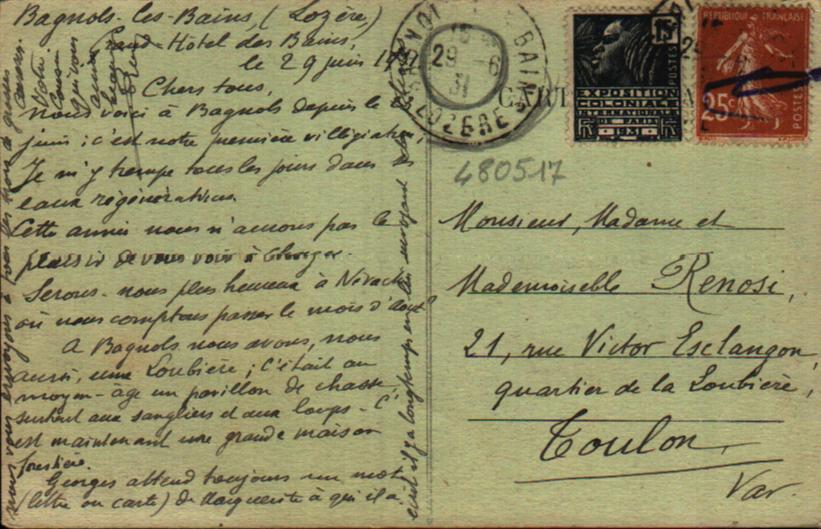 Bagnols-les-Bains, (Lozère)
Grand-Hôtel des Bains,
le 29 juin 1931
Chers tous,
Nous voici à Bagnols depuis le
juin; c'est notre première villégiature,
Je m'y trempe tous les jours dans les
eaux régénératrices.
Cette année nous n'aurons pas le
plaisir de vous voir à
Serons-nous plus heureux à Névache
où nous comptons passer le mois d'août?
A Bagnols nous avons, nous
aussi, une Loubière; c'était au
moyen-âge un pavillon de chasse
surtout aux sangliers et aux loups. C'
est maintenant une grande maison
forestière.
Georges attend toujours un mot
(lettre ou carte) de Marguerite à qui il a
écrit il y a longtemps en lui envoyant
nous vous envoyons à tous les trois de grosses
BAGNOLS LES BAINS
15
29 -6
31
LOZERE
CARTE
EXPOSITION
COLONIALE
INTERNATIONALE
DE PARIS
1931
15c
POSTES
REPUBLIQUE FRANCAISE
25c
POSTES
480517
Monsieur, Madame et
Mademoiselle Renosi,
21, rue Victor Esclangon,
quartier de la Loubière,
Toulon
Var.